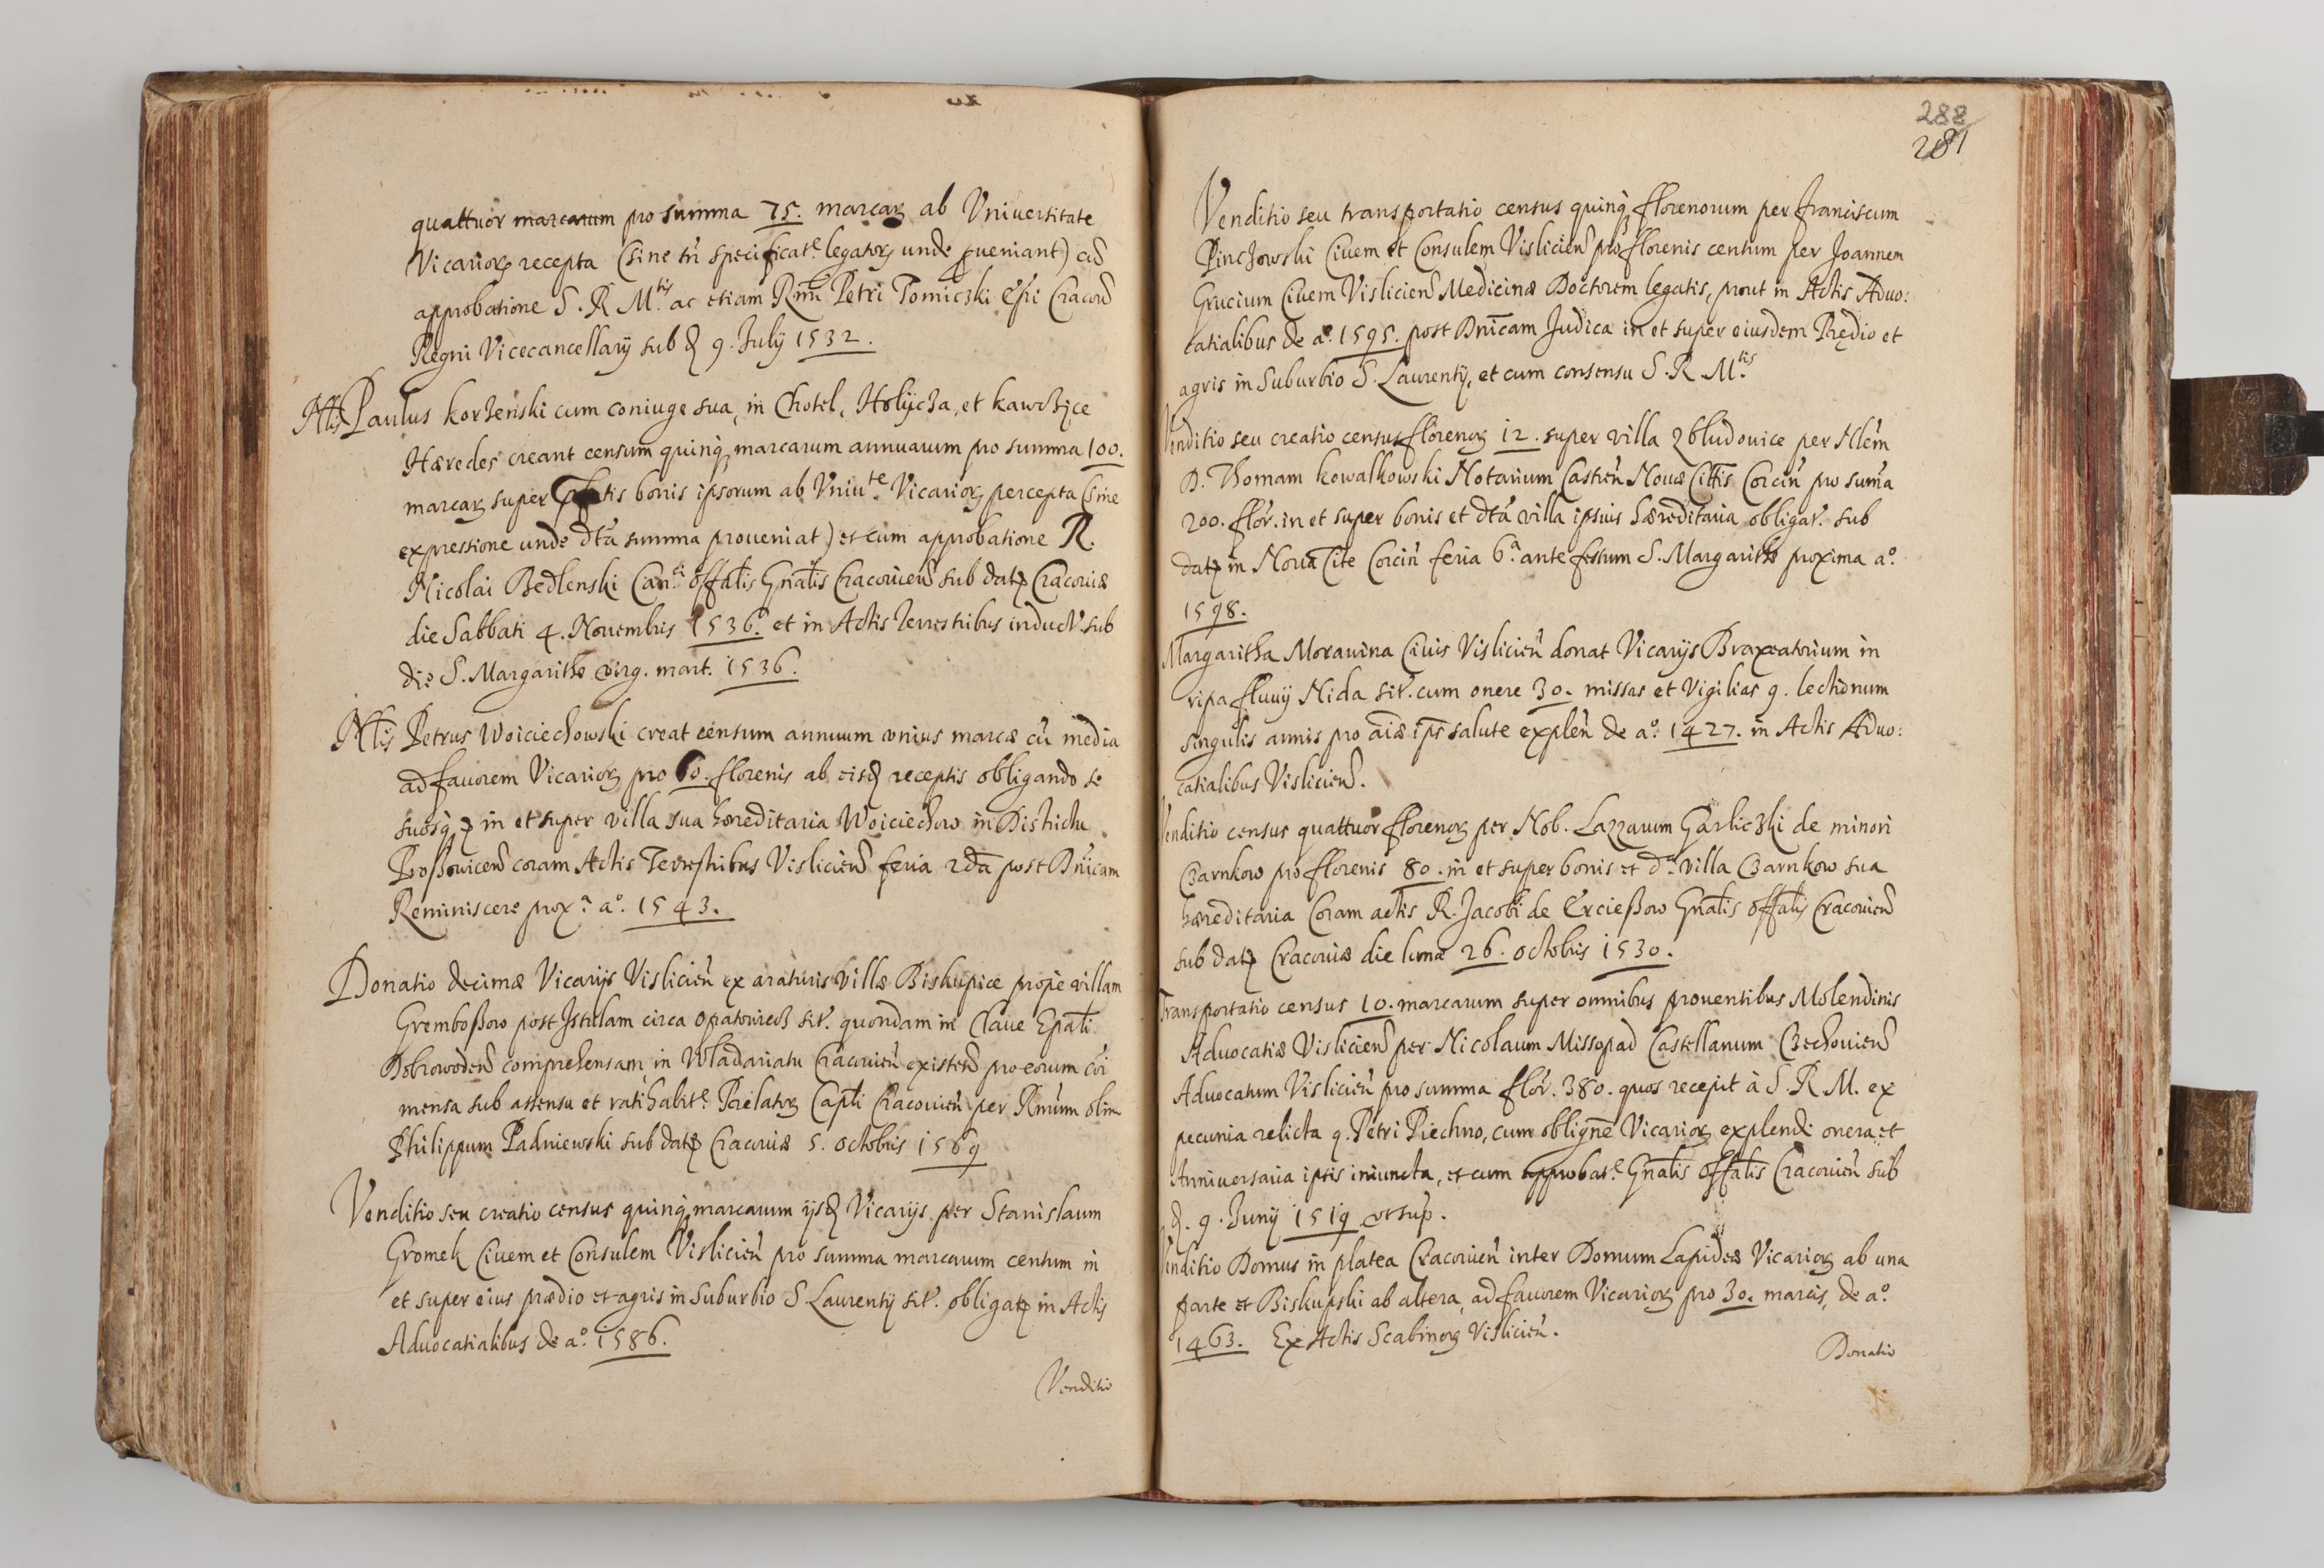 quattuor marcarum pro summa 75. marcaꝝ ab Vniuersitate
Vicarioꝝ recepta (sine tn̄ specificat.e legatoꝝ unde ꝓueniant) cū
approbatione S. R. M.tis ac etiam Rm̄i Petri Tomiczki Ep̄i Cracoū
Regni Vicecancellarij sub d 9. Julij 1532.
Mtis Paulus korzenski cum coniuge sua, in Chotel, Holijcza, et kawczijce
Hæredes creant censum quinq́ marcarum annuarum pro summa 100.
marcaꝝ super bonis ipsorum ab Vniu.te Vicarioꝝ percepta (sine
expressione unde dt̄a summa proueniat) et cum approbatione R.
Nicolai Bedlenski Can.ci offal̄is Gn̄alis Cracouien̄ sub datꝫ Cracouiæ
die Sabbati 4. Nouembris 1536.o et in Actis Terrestribus induct. sub
die S. Margarithæ virg. mart. 1536.
Mtis Petrus Woiciechowski creat censum annuum vnius marcæ cū media
ad fauorem Vicarioꝝ pro 60. florenis ab eisd receptis obligando se
suosq́ꝫ in et super villa sua hæreditaria Woiciechow in Districtu
Proßouicen̄ coram Actis Terrestribus Vislicien̄ feria 2da post Dn̄icam
Reminiscere prox.a a.o 1543.
Donatio decimæ Vicarijs Vislicien̄ ex araturis villæ Biskupice prope villam
Gremboßow post Istulam circa Opatowiecz sit. quondam in Claue Epāli
Dobrowoden̄ comprehensam in Wladariatu Cracouien̄ existen̄ pro eorum cōi
mensa sub assensu et ratihabit.e Prelatoꝝ Capl̄i Cracouien̄ per Rm̄um olim
Philippum Padniewski sub datꝫ Cracouiæ 5. Octobris 1569
Venditio seu creatio census quinq́ marcarum ijsd Vicarijs per Stanislaum
Gromek Ciuem et Consulem Vislicien̄ pro summa marcarum centum in
et super eius prædio et agris in Suburbio S. Laurentij sit. obligatꝫ in Actis
Aduocatialibus de a.o 1586.
Venditio
288
281
Venditio seu transportatio census quinq́ florenorum per Franciscum
Pinczowski Ciuem et Consulem Vislicien̄ pro florenis centum per Joannem
Grucium Ciuem Vislicien̄ Medicinæ Doctorem legatis, prout in Actis Aduo:
catialibus de a.o 1595. post Dn̄icam Judica in et super eiusdem Prędio et
agris in Suburbio S. Laurentij, et cum consensu S. R. M.tis
Venditio seu creatio census florenoꝝ 12. super villa Zbludouice per Nlēm
D. Thomam kowalkowski Notarium Castren̄ Nouæ Citt̄is Corcin̄ pro sum̄a
200. flor̄. in et super bonis et dt̄a villa ipsius hæreditaria obligat. sub
datꝫ in Noua Cite Corcin̄ feria 6.a ante festum S. Margarithæ proxima a.o
1598.
Margaritha Morauina Ciuis Vislicien̄ donat Vicarijs Braxatorium in
ripa fluuij Nida sit. cum onere 30. missas et Vigilias 9. lectionum
singulis annis pro aīæ ip̄s salute explen̄ de a.o 1427. in Actis Aduo:
catialibus Vislicien̄.
Venditio census quattuor florenoꝝ per Nob. Lazzarum Garliczki de minori
Czarnkow pro florenis 80. in et super bonis et d.a villa Czarnkow sua
hæreditaria Coram actis R. Jacobi de Ercießow Gn̄alis offal̄is Cracouien̄
sub datꝫ Cracouiæ die lunæ 26. octobris 1530.
Transportatio census 10. marcarum super omnibus prouentibus Molendinis
Aduocatiæ Vislicien̄ per Nicolaum Missopad Castellanum Czechouien̄
Aduocatum Vislicien̄ pro summa flor̄. 380. quos recepit à S. R. M. ex
pecunia relicta q. Petri Piechno, cum oblign̄e Vicarioꝝ explendi onera et
Anniuersaria ipsis iniuncta, et cum approbat.e Gn̄alis offal̄is Cracouien̄ sub
d. 9. Junij 1519 vt sup̄.
Venditio Domus in platea Cracouien̄ inter Domum Lapideā Vicarioꝝ ab una
parte et Biskupski ab altera, ad fauorem Vicarioꝝ pro 30. marcis, de a.o
1463. Ex Actis Scabinoꝝ Vislicien̄.
Donatio